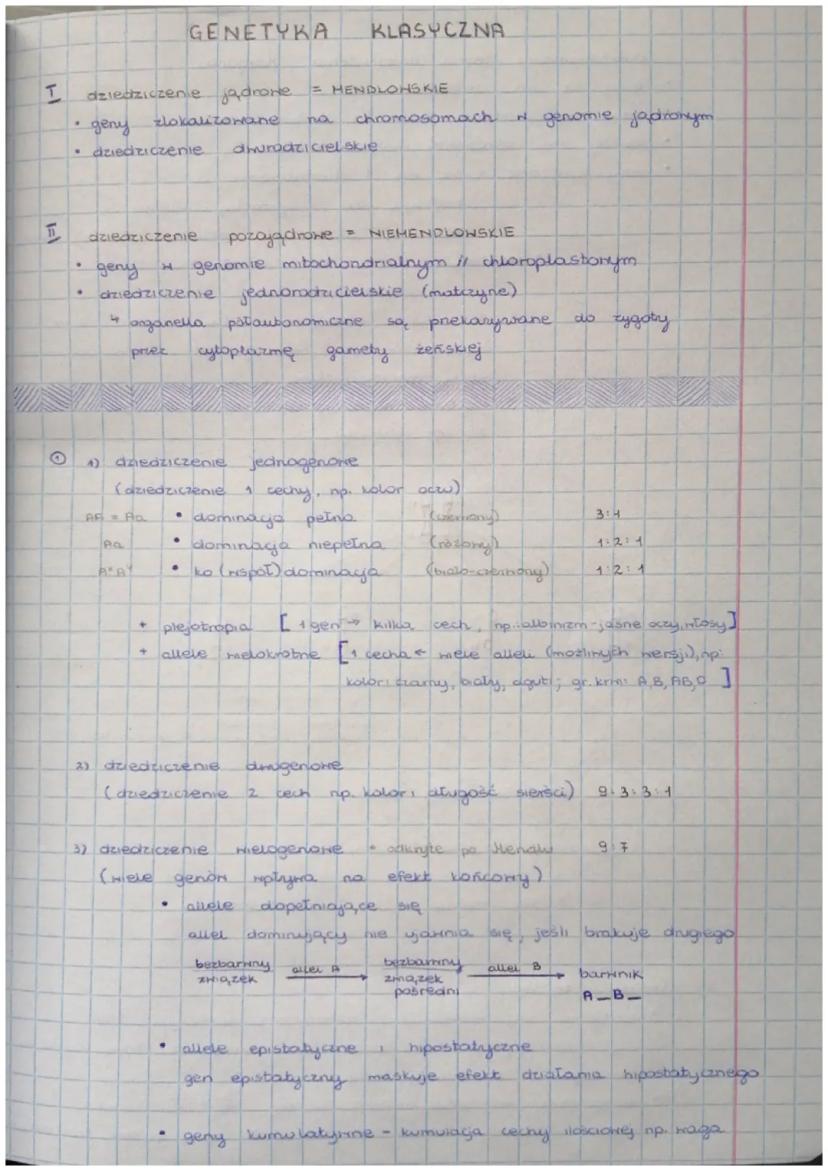 GENETYKA KLASYCZNA
I dziedziczenie jądrowe = MENDLOWSKIE
• geny zlokalizowane na chromosomach w genomie jądrowym
• dziedziczenie dwurodzicielskie
II dziedziczenie pozajądrowe = NIEMENDLOWSKIE
• geny w genomie mitochondrialnym i/ chloroplastowym
• dziedziczenie jednorodzicielskie (matczyne)
↳ organella półautonomiczne są przekazywane do zygoty
przez cytoplazmę gamety żeńskiej
① 1) dziedziczenie jednogenowe
(dziedziczenie 1 cechy, np. kolor oczu)
AA = Aa • dominacja pełna (czerwony) 3:1
Aa • dominacja niepełna (różowy) 1:2:1
• ko (współ) dominacja (biało-czerwony) 1:2:1
+ plejotropia [1 gen → kilka cech, np.: albinizm - jasne oczy, włosy]
+ allele wielokrotne [1 cecha ← wiele alleli (możliwych wersji), np:
kolor: czarny, biały, aguti; gr. krwi: A, B, AB, 0]
2) dziedziczenie dwugenowe
(dziedziczenie 2 cech np. kolor i długość sierści) 9:3:3:1
3) dziedziczenie wielogenowe • odkryte po Mendlu 9:7
(wiele genów wpływa na efekt końcowy)
• allele dopełniające się
allel dominujący nie ujawnia się, jeśli brakuje drugiego
bezbarwny związek allel A → bezbarwny związek pośredni allel B → barwnik
A_B_
• allele epistatyczne i hipostatyczne
gen epistatyczny maskuje efekt działania hipostatycznego
• geny kumulatywne - kumulacja cechy ilościowej np. waga